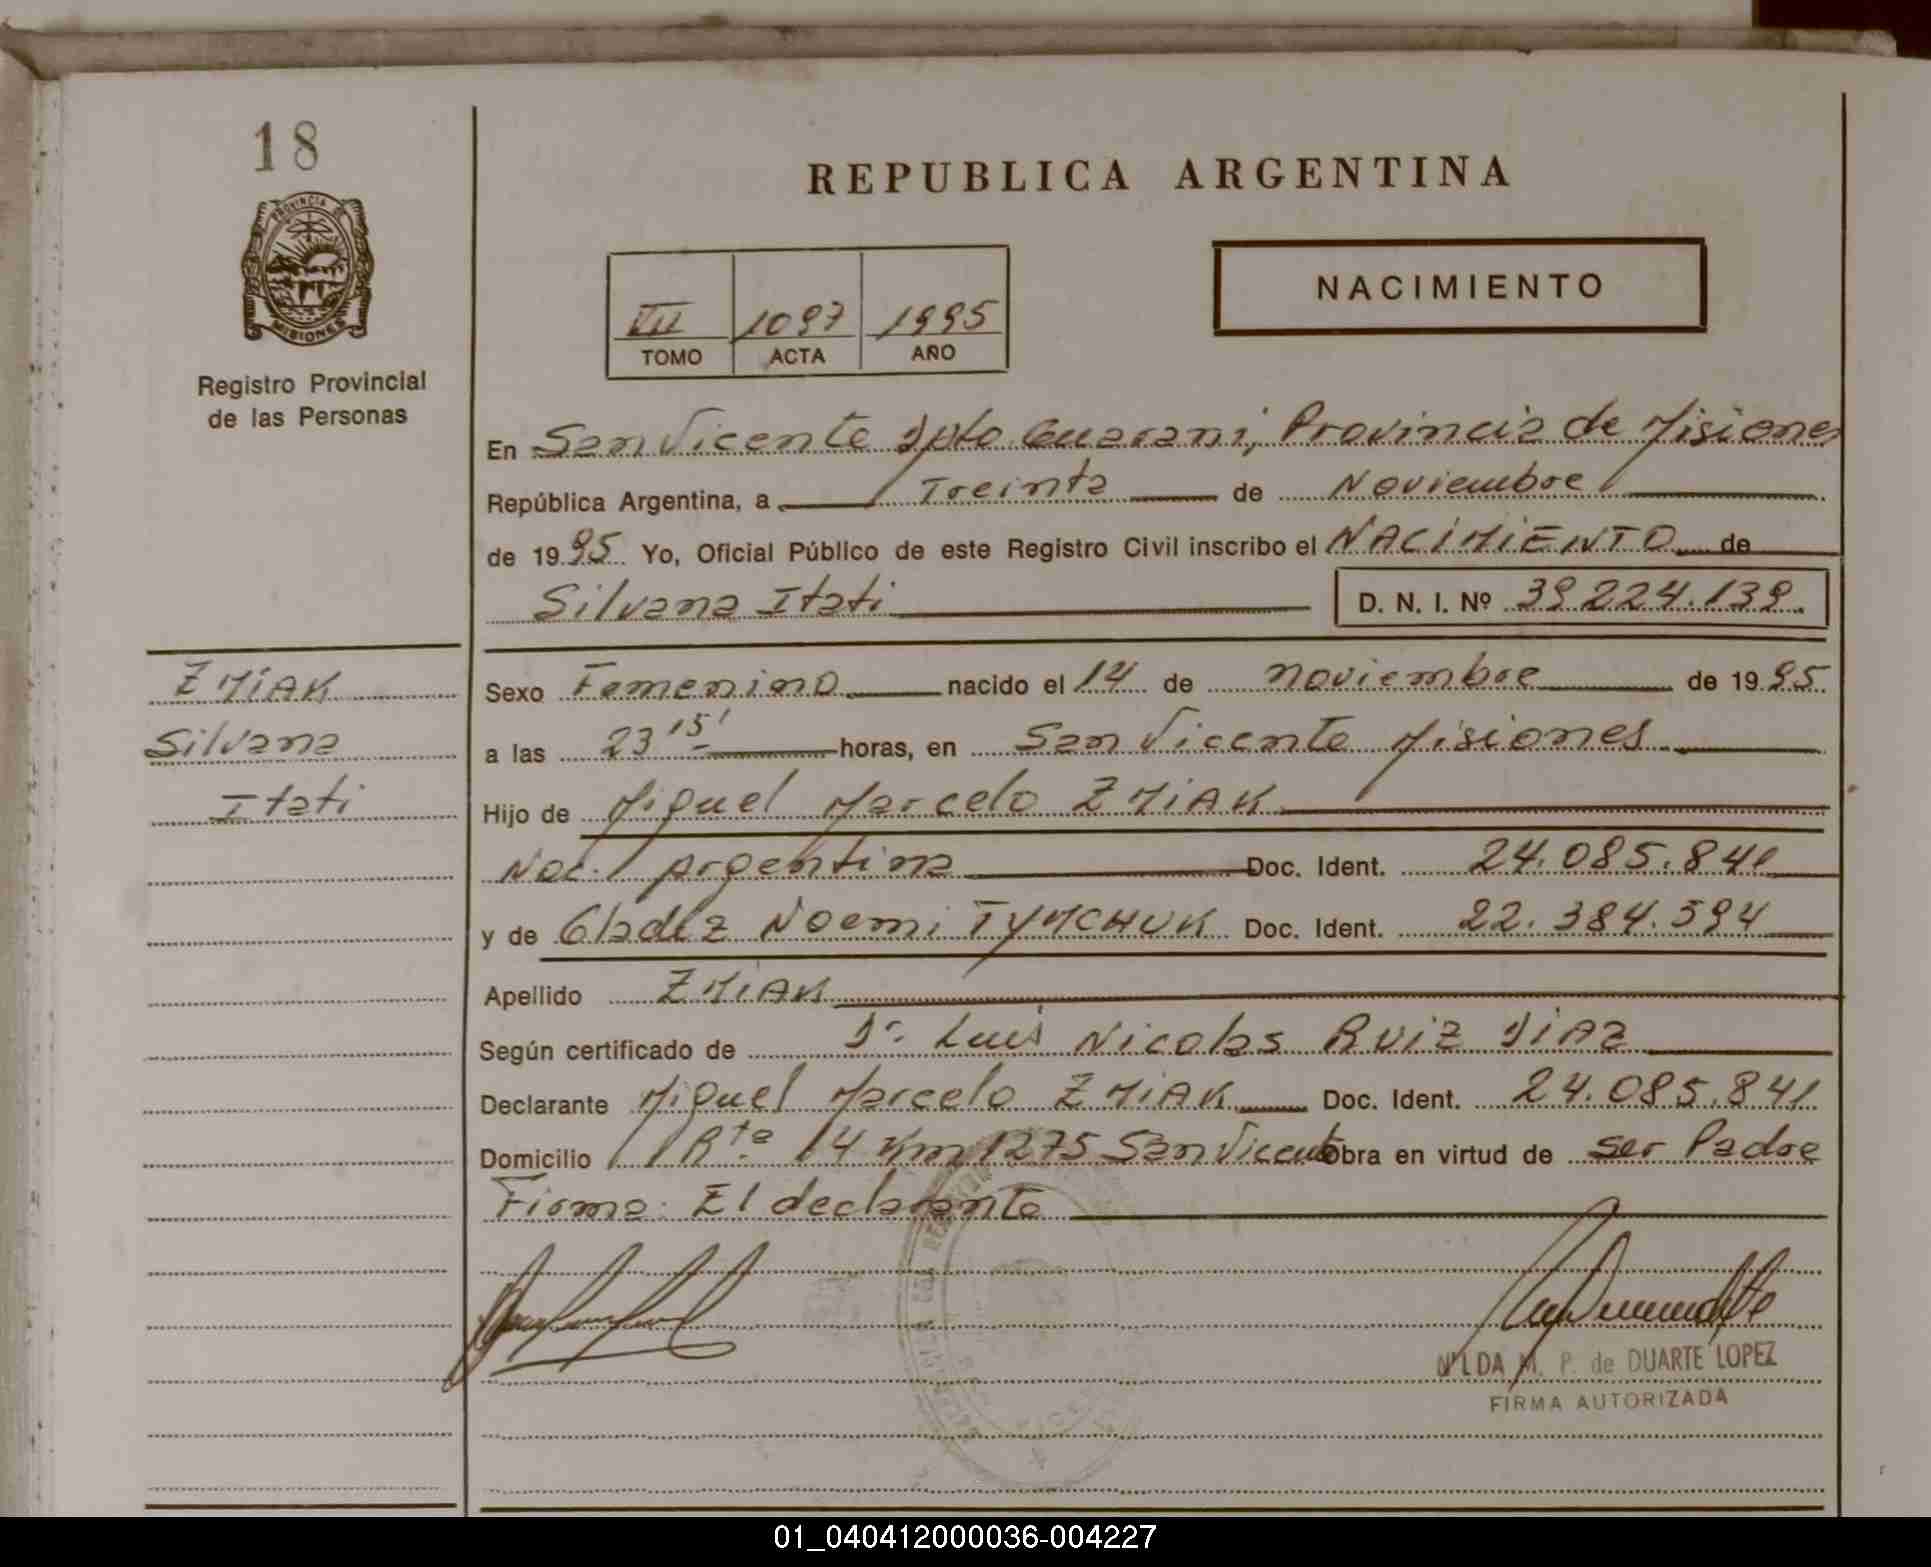 18
PROVINCIA DE
MISIONES
Registro Provincial
de las Personas
REPUBLICA ARGENTINA
NACIMIENTO
III 1097 1995
TOMO ACTA AÑO
En San Vicente Dpto Guarani, Provincia de Misiones
República Argentina, a Treinta de Noviembre
de 1995 Yo, Oficial Público de este Registro Civil inscribo el NACIMIENTO de
Silvana Itati D. N. I. Nº 39224.139.
ZMIAK
Silvana
Itati
Sexo Femenino nacido el 14 de noviembre de 1995
a las 23 15' horas, en San Vicente Misiones
Hijo de Miguel Marcelo ZMIAK
Nac. Argentina Doc. Ident. 24.085.841
y de Gladiz Noemi TYMCHUK Doc. Ident. 22.384.594
Apellido ZMIAK
Según certificado de Dr. Luis Nicolas RUIZ DIAZ
Declarante Miguel Marcelo ZMIAK Doc. Ident. 24.085.841
Domicilio Rta 14 Km 1275 San Vicente Obra en virtud de ser Padre
Firma: El declarante
NILDA M. P. de DUARTE LOPEZ
FIRMA AUTORIZADA
01_040412000036-004227